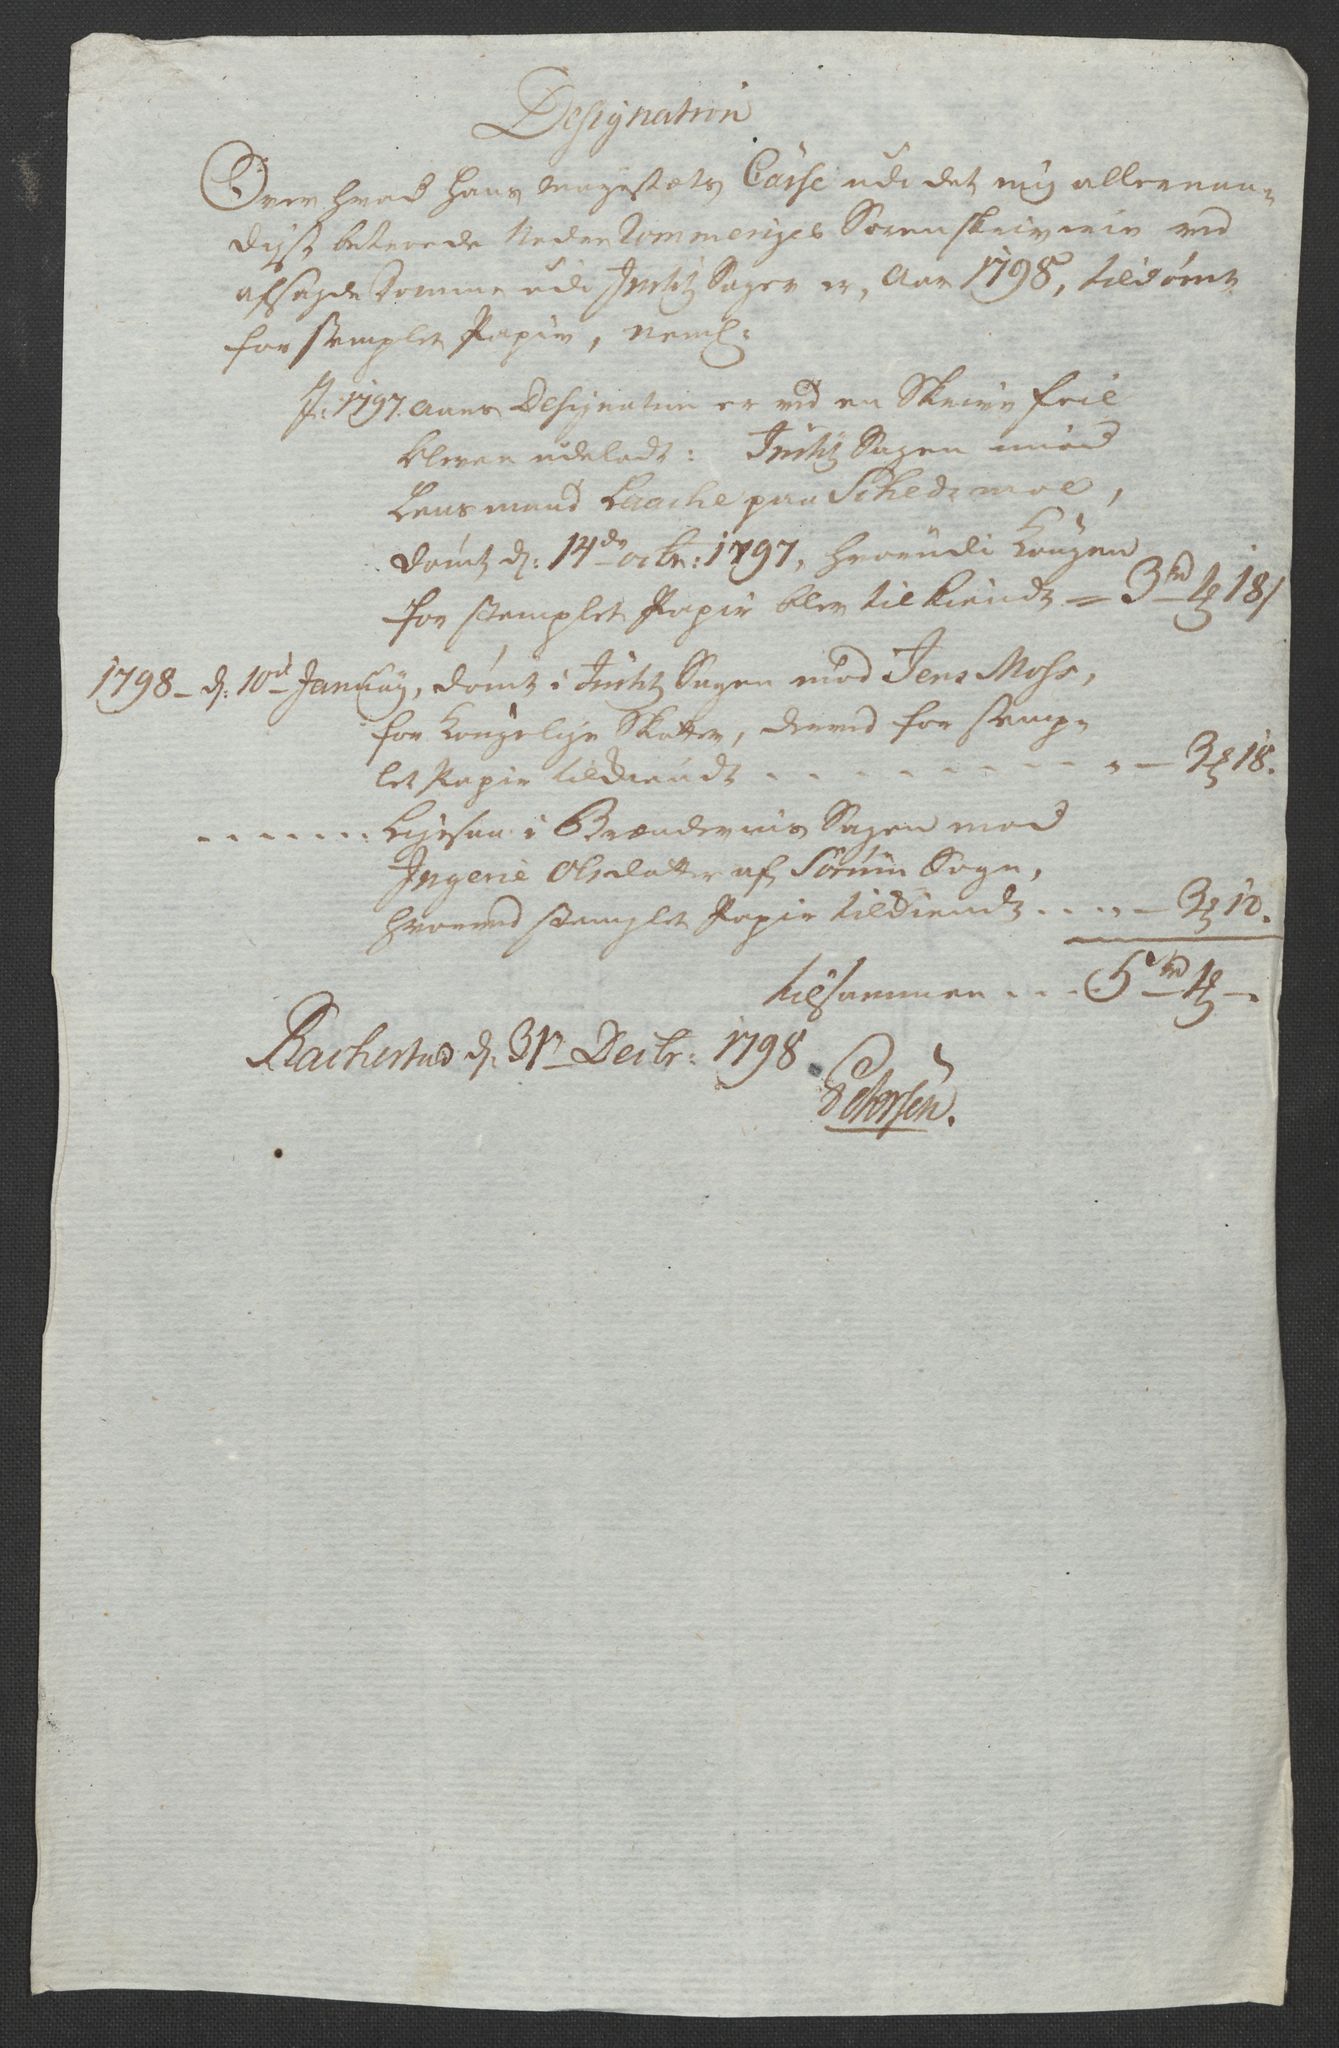 Designation
Over hvad Hans Mayestæts Casse udi det mig allernaa-
digst betroede Nedre Rommeriges Sorenskriverie ved
afsagde Domme udi Justitz Sager er, Aar 1798, tildømt
for stemplet Papiir, neml:
I: 1797 Aars Designation er ved en Skrive feil
bleven udeladt: Justitz Sagen mod
Lensmand Laache paa Schedsmoe,
dømt d: 14de octbr: 1797, hvorudi Kongen
for stemplet Papir blev tilkiendt = 3rd 1 18/
1798 - d: 10de January, dømt i Justitz Sagen mod Jens Moss,
for Kongelige Skatter, derved for stemp-
let Papir tilkiendt - - - 3 18.
- - - Ligesaa i Brændeviins Sagen mod
Ingerie Olsdatter af Sørum Sogn,
hvorved stemplet Papir tilkiendt - - - 3 18.
tilsammen - - - 5rd 1 -
Rachestad d: 31te Decbr: 1798
Petersen.